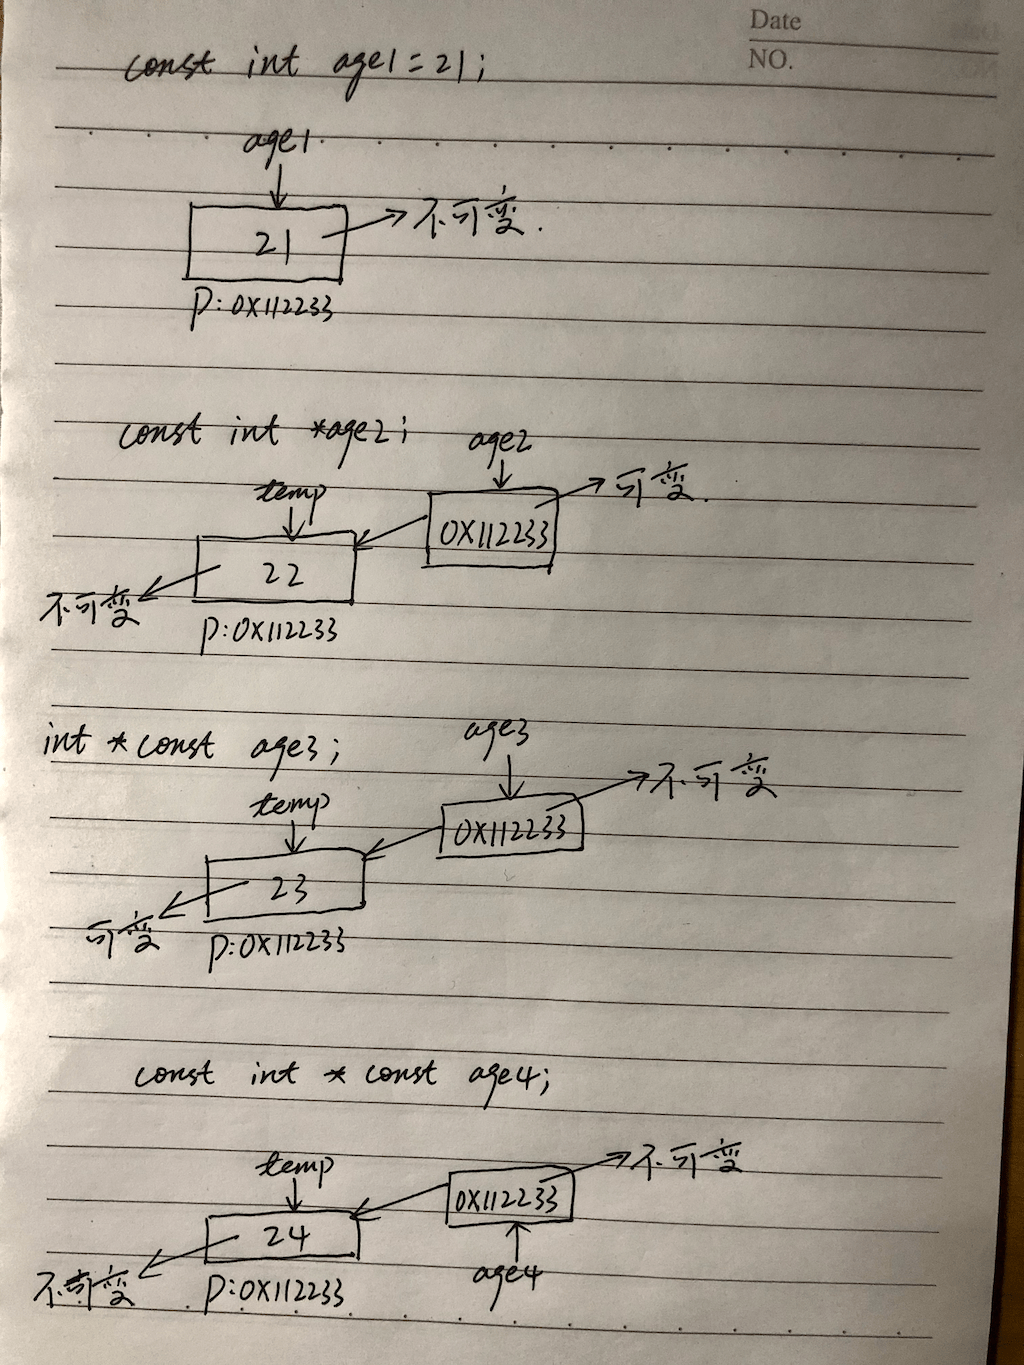 Date
NO.
const int age1=21;
age1
21
不可变.
p:0X112233
const int *age2;
age2
可变.
temp
0X112233
22
不可变
p:0X112233
int *const age3;
age3
不可变
temp
0X112233
23
可变
p:0X112233
const int * const age4;
temp
不可变
0X112233
24
age4
不可变
p:0X112233